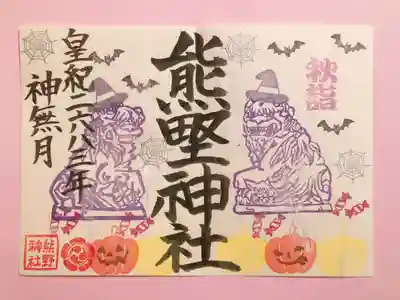 秋詣
熊墅神社
皇紀二六八三年
神無月
熊野
神社